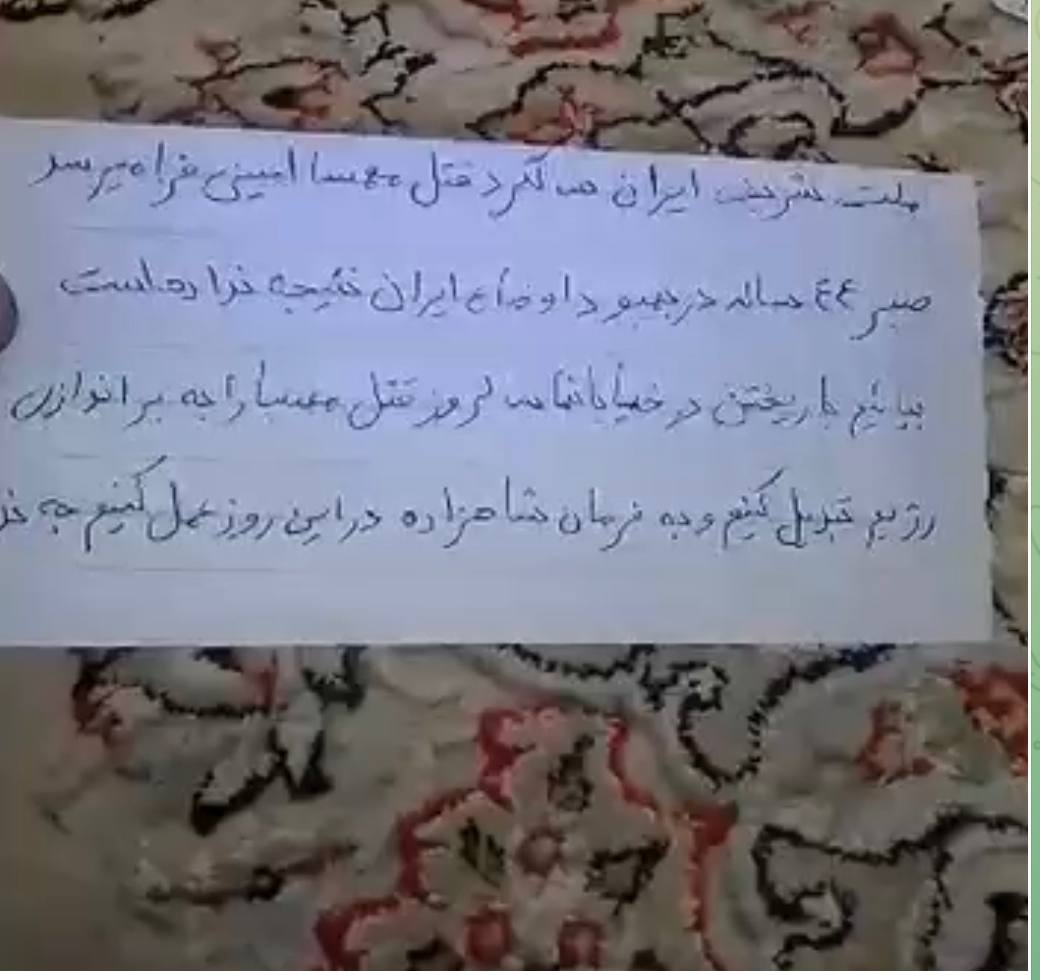 ملت شریف ایران سالگرد قتل مهسا امینی فرا میرسد
صبر ٤٤ ساله در بهبود اوضاع ایران نتیجه نداده است
بیائیم با ریختن در خیابانها سالروز قتل مهسا را به براندازی
رژیم تبدیل کنیم و به فرمان شاهزاده در این روز عمل کنیم به